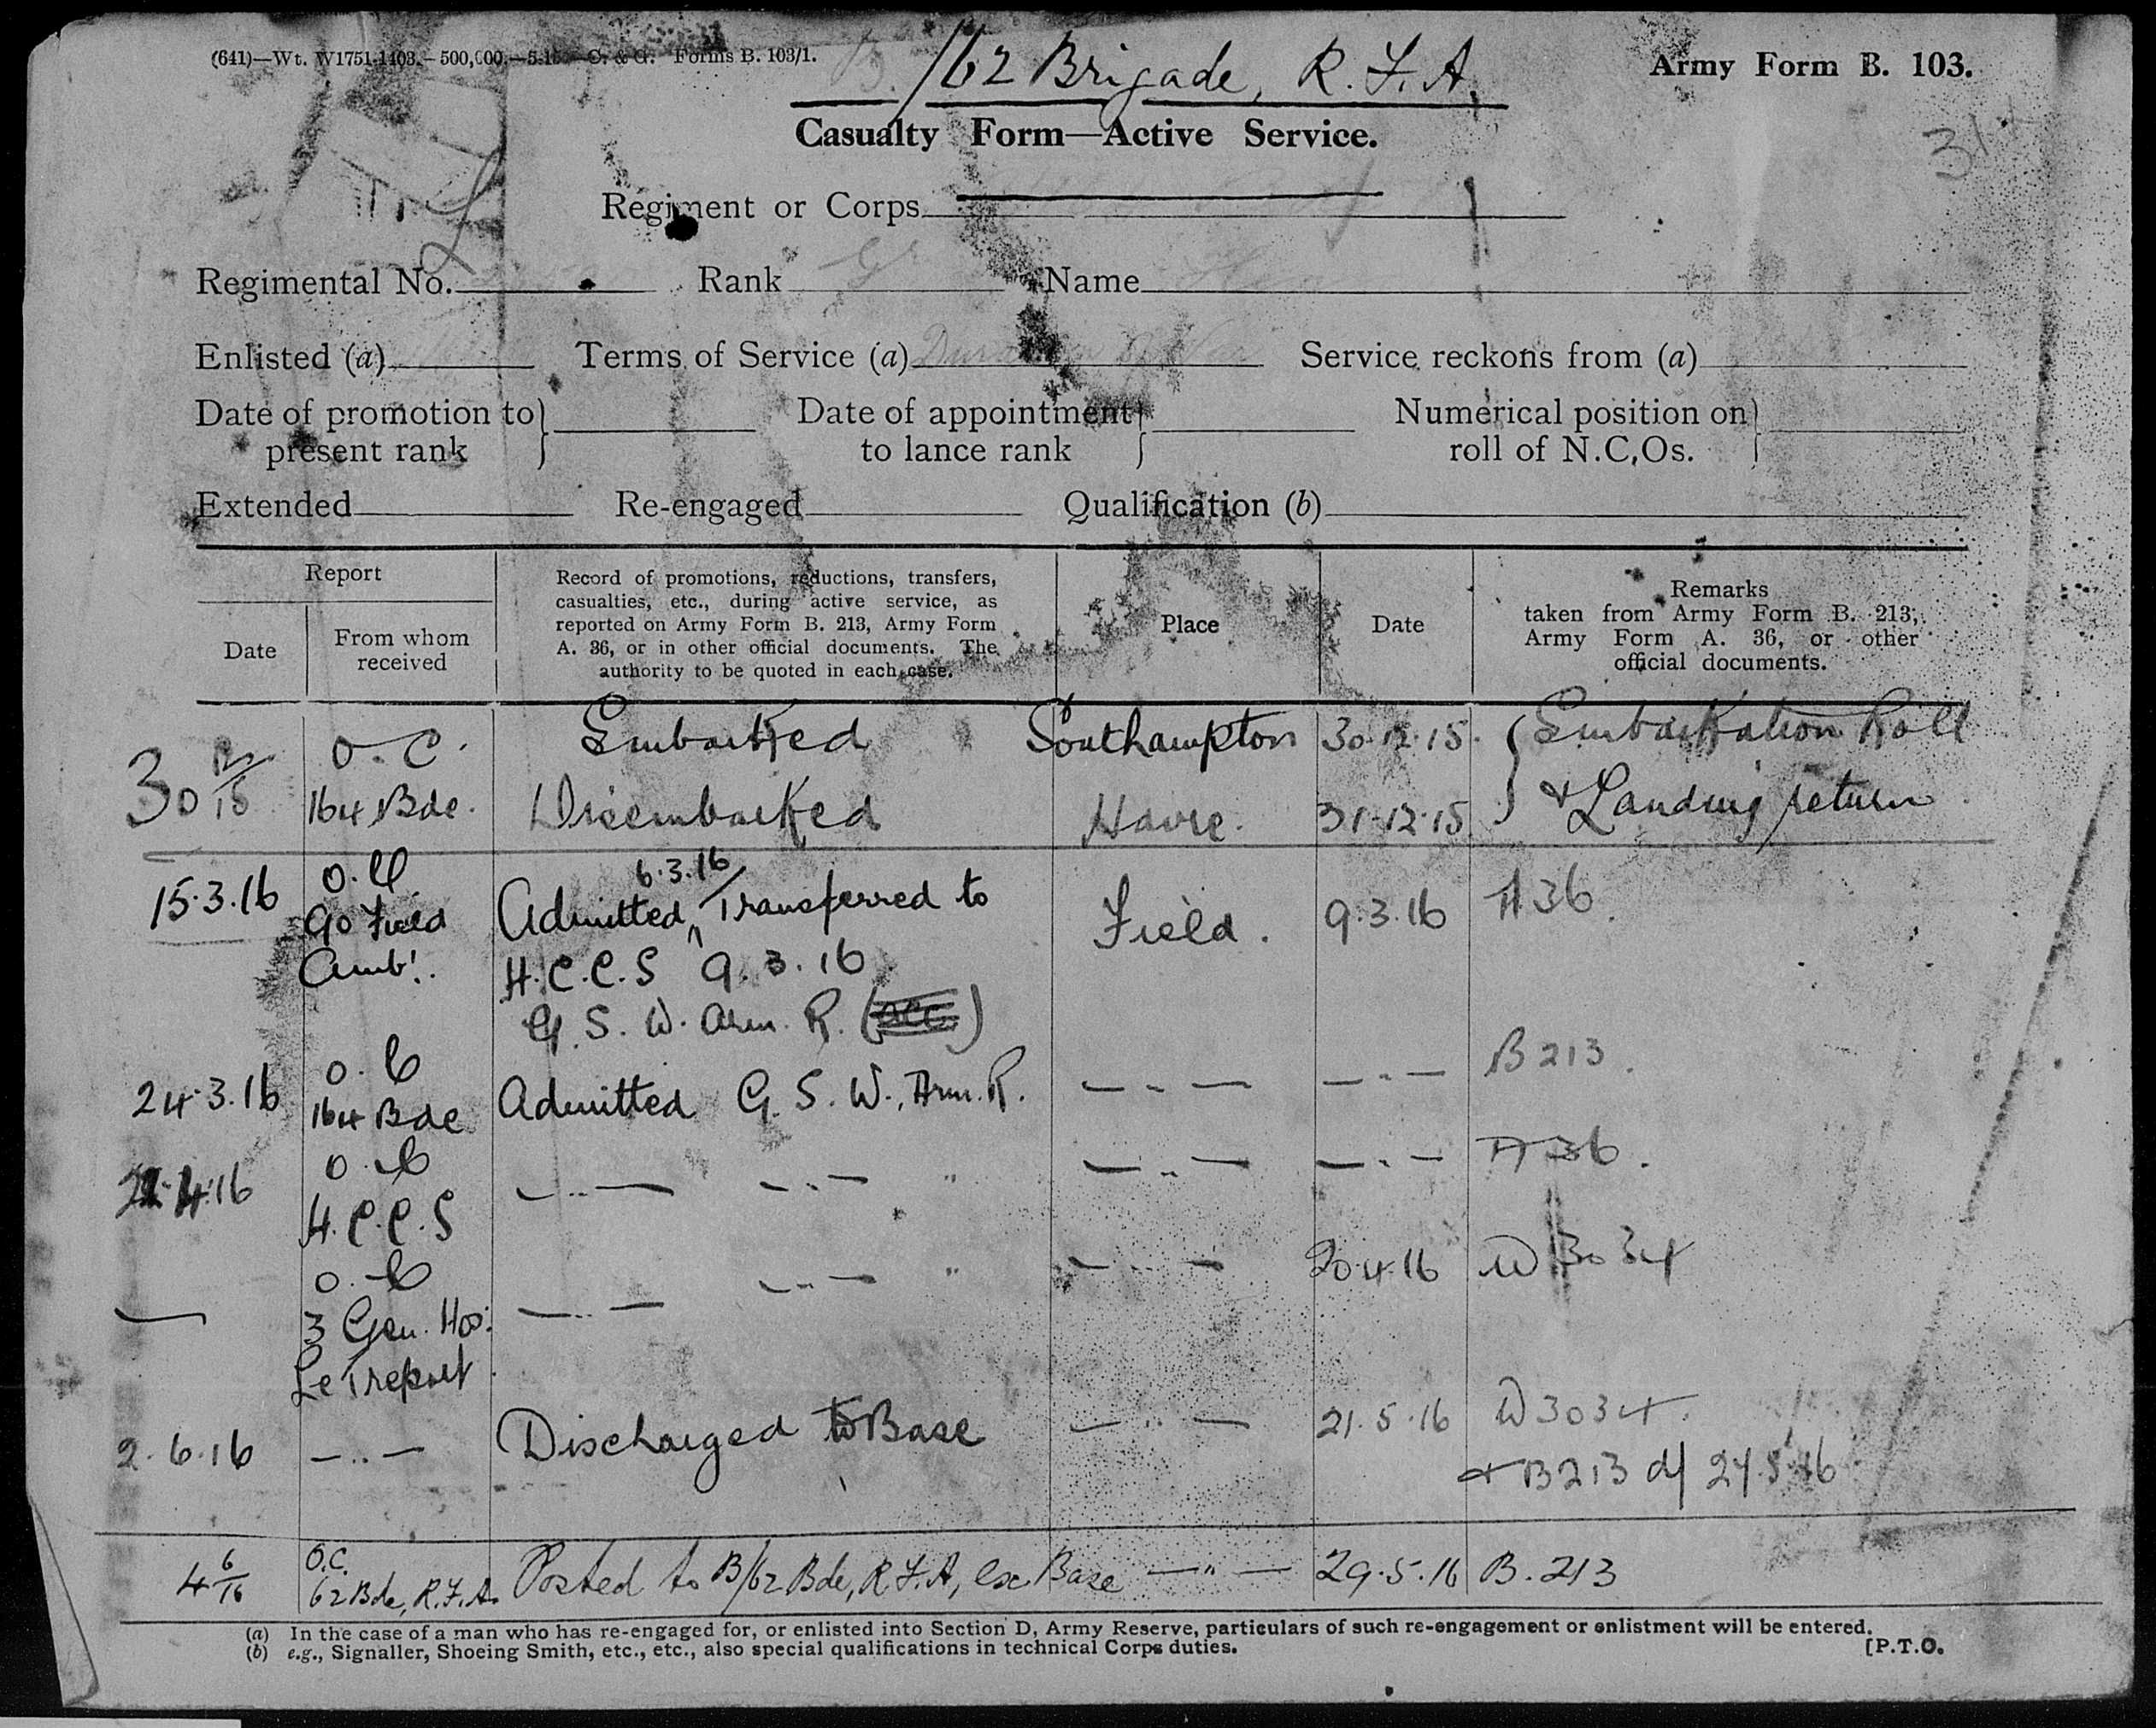 (641)—Wt. W1751-1403.—500,000.—5-15—C. & G. Forms B. 103/1.
B./62 Brigade, R.F.A.
Army Form B. 103.
Casualty Form—Active Service.
Regiment or Corps
Regimental No. Rank Gr Name
Enlisted (a) Terms of Service (a) Duration of War Service reckons from (a)
Date of promotion to present rank } Date of appointment to lance rank } Numerical position on roll of N.C.Os. }
Extended Re-engaged Qualification (b)
Report
Date
From whom received
Record of promotions, reductions, transfers,
casualties, etc., during active service, as
reported on Army Form B. 213, Army Form
A. 36, or in other official documents. The
authority to be quoted in each case.
Place
Date
Remarks
taken from Army Form B. 213,
Army Form A. 36, or other
official documents.
30 12/15 O.C. Embarked Southampton 30.12.15 } Embarkation Roll
164 Bde. Disembarked Havre. 31.12.15 } & Landing return
15.3.16 O.C. 6.3.16
90 Field Admitted, Transferred to Field. 9.3.16 A36.
Ambt. H.C.C.S 9.3.16
G.S.W. Arm. R. (acc)
24.3.16 O.C 164 Bde Admitted G.S.W., Arm. R. —"— —"— B213.
4.16 O.C 4.C.C.S —"— —"— " —"— —"— A36.
— O.C 3 Gen. Hos: —"— —"— " —"— 20.4.16 W3034
Le Treport
2.6.16 —"— Discharged to Base —"— 21.5.16 W3034.
& B213 d/ 27.5.16
4 6/16 O.C.
62 Bde, R.F.A. Posted to B/62 Bde, R.F.A, ex Base —"— 29.5.16 B.213
(a) In the case of a man who has re-engaged for, or enlisted into Section D, Army Reserve, particulars of such re-engagement or enlistment will be entered.
(b) e.g., Signaller, Shoeing Smith, etc., etc., also special qualifications in technical Corps duties.
[P.T.O.